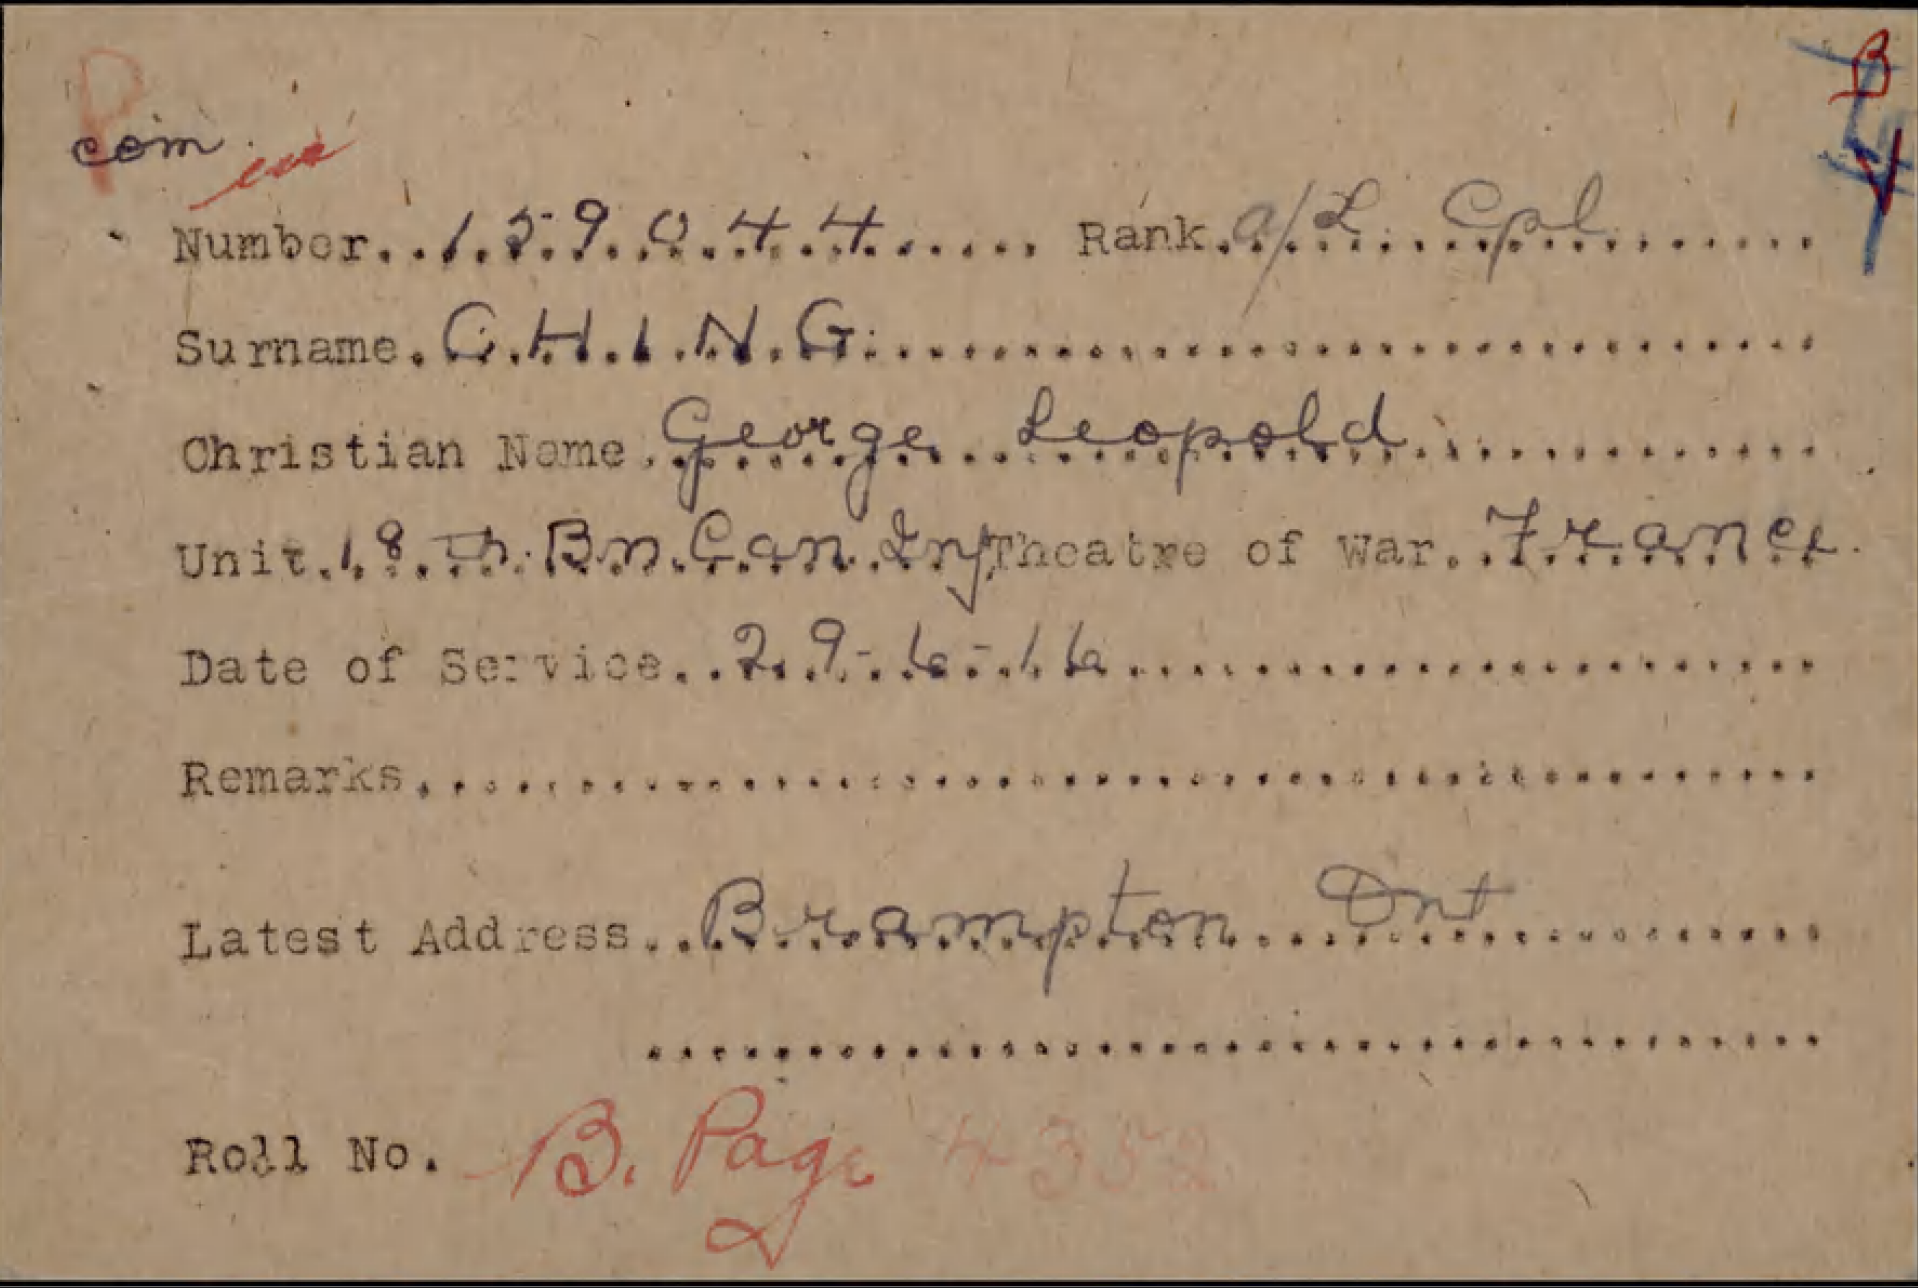 P
B
com
Number 159044 Rank a/L Cpl
Surname CHING
Christian Name George Leopold
Unit 18 Th Bn Can Inf Theatre of War France
Date of Service 29-6-16
Remarks
Latest Address Brampton Ont
Roll No. B. Page 4352